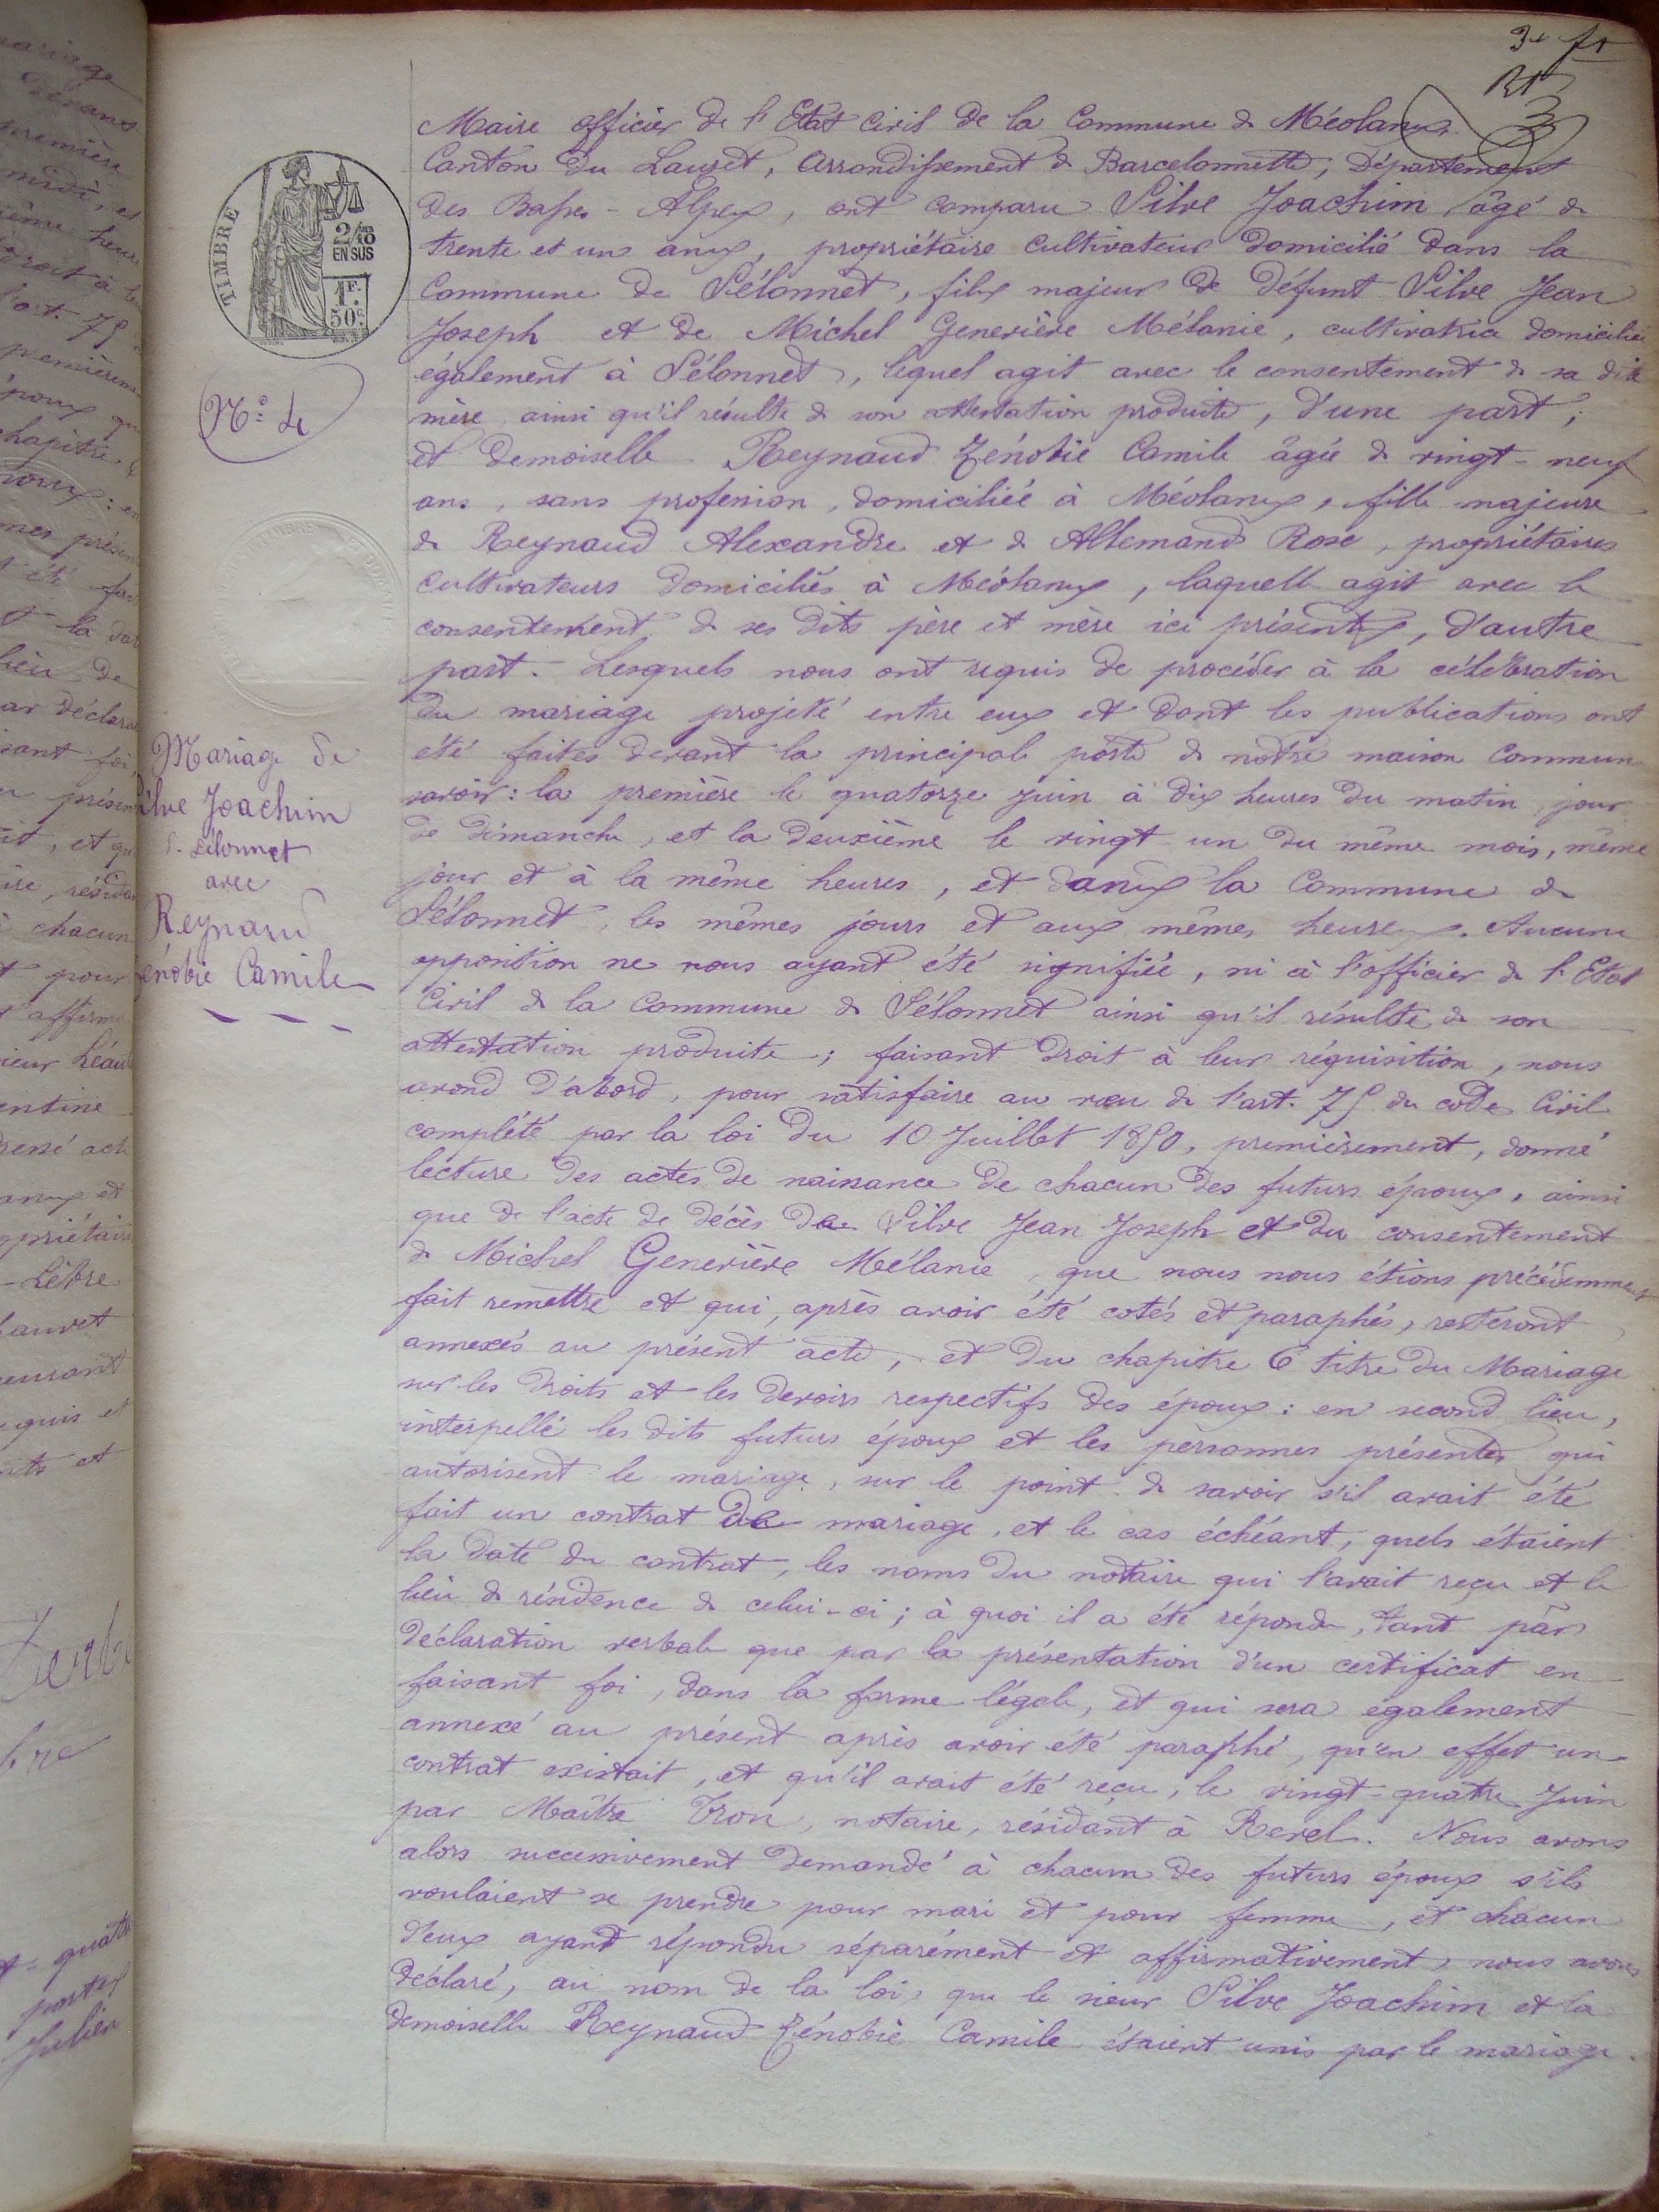 3
Maire officier de l'Etat Civil de la Commune de Méolans
Canton du Lauzet, arrondissement de Barcelonnette, Département
des Basses-Alpes, ont comparu Silve Joachim âgé de
trente et un ans, propriétaire cultivateur domicilié dans la
Commune de Sélonnet, fils majeur de défunt Silve Jean
Joseph et de Michel Generière Mélanie, cultivatrice domiciliée
également à Sélonnet, lequel agit avec le consentement de sa dite
mère ainsi qu'il résulte de son attestation produite, d'une part;
et Demoiselle Reynaud Zénobie Camile âgée de vingt-neuf
ans, sans profession, domiciliée à Méolans, fille majeure
de Reynaud Alexandre et de Allemand Rose, propriétaires
cultivateurs domiciliés à Méolans, laquelle agit avec le
consentement de ses dits père et mère ici présents, d'autre
part. Lesquels nous ont requis de procéder à la célébration
du mariage projeté entre eux et dont les publications ont
été faites devant la principale porte de notre maison Commune
savoir: la première le quatorze juin à dix heures du matin, jour
de dimanche, et la deuxième le vingt un du même mois, même
jour et à la même heures, et dans la Commune de
Sélonnet, les mêmes jours et aux mêmes heures. Aucune
opposition ne nous ayant été signifiée, ni à l'officier de l'Etat
Civil de la Commune de Sélonnet ainsi qu'il résulte de son
attestation produite; faisant droit à leur réquisition, nous
avond d'abord, pour satisfaire au vœu de l'art. 75 du code Civil
complété par la loi du 10 Juillet 1850, premièrement, donné
lecture des actes de naissance de chacun des futurs époux, ainsi
que de l'acte de décès de Silve Jean Joseph et du consentement
de Michel Generière Mélanie, que nous nous étions précédemment
fait remettre et qui, après avoir été cotés et paraphés, resteront
annexés au présent acte, et du chapitre 6 titre du Mariage
sur les droits et les devoirs respectifs des époux: en second lieu,
interpellé les dits futurs époux et les personnes présentes qui
autorisent le mariage, sur le point de savoir s'il avait été
fait un contrat de mariage, et le cas échéant, quels étaient
la date du contrat, les noms du notaire qui l'avait reçu et le
lieu de résidence de celui-ci; à quoi il a été répondu, tant par
déclaration verbale que par la présentation d'un certificat en
faisant foi, dans la forme légale, et qui sera également
annexé au présent après avoir été paraphé, qu'en effet un
contrat existait, et qu'il avait été reçu, le vingt-quatre Juin
par Maître Tron, notaire, résidant à Revel. Nous avons
alors successivement demandé à chacun des futurs époux s'ils
voulaient se prendre pour mari et pour femme, et chacun
d'eux ayant répondu séparément et affirmativement, nous avons
déclaré, au nom de la loi, que le sieur Silve Joachim et la
demoiselle Reynaud Zénobie Camile étaient unis par le mariage.
TIMBRE
2/10
EN SUS
1F.
50c.
N° 4
Mariage de
Silve Joachim
Sélonnet
avec
Reynaud
Zénobie Camile